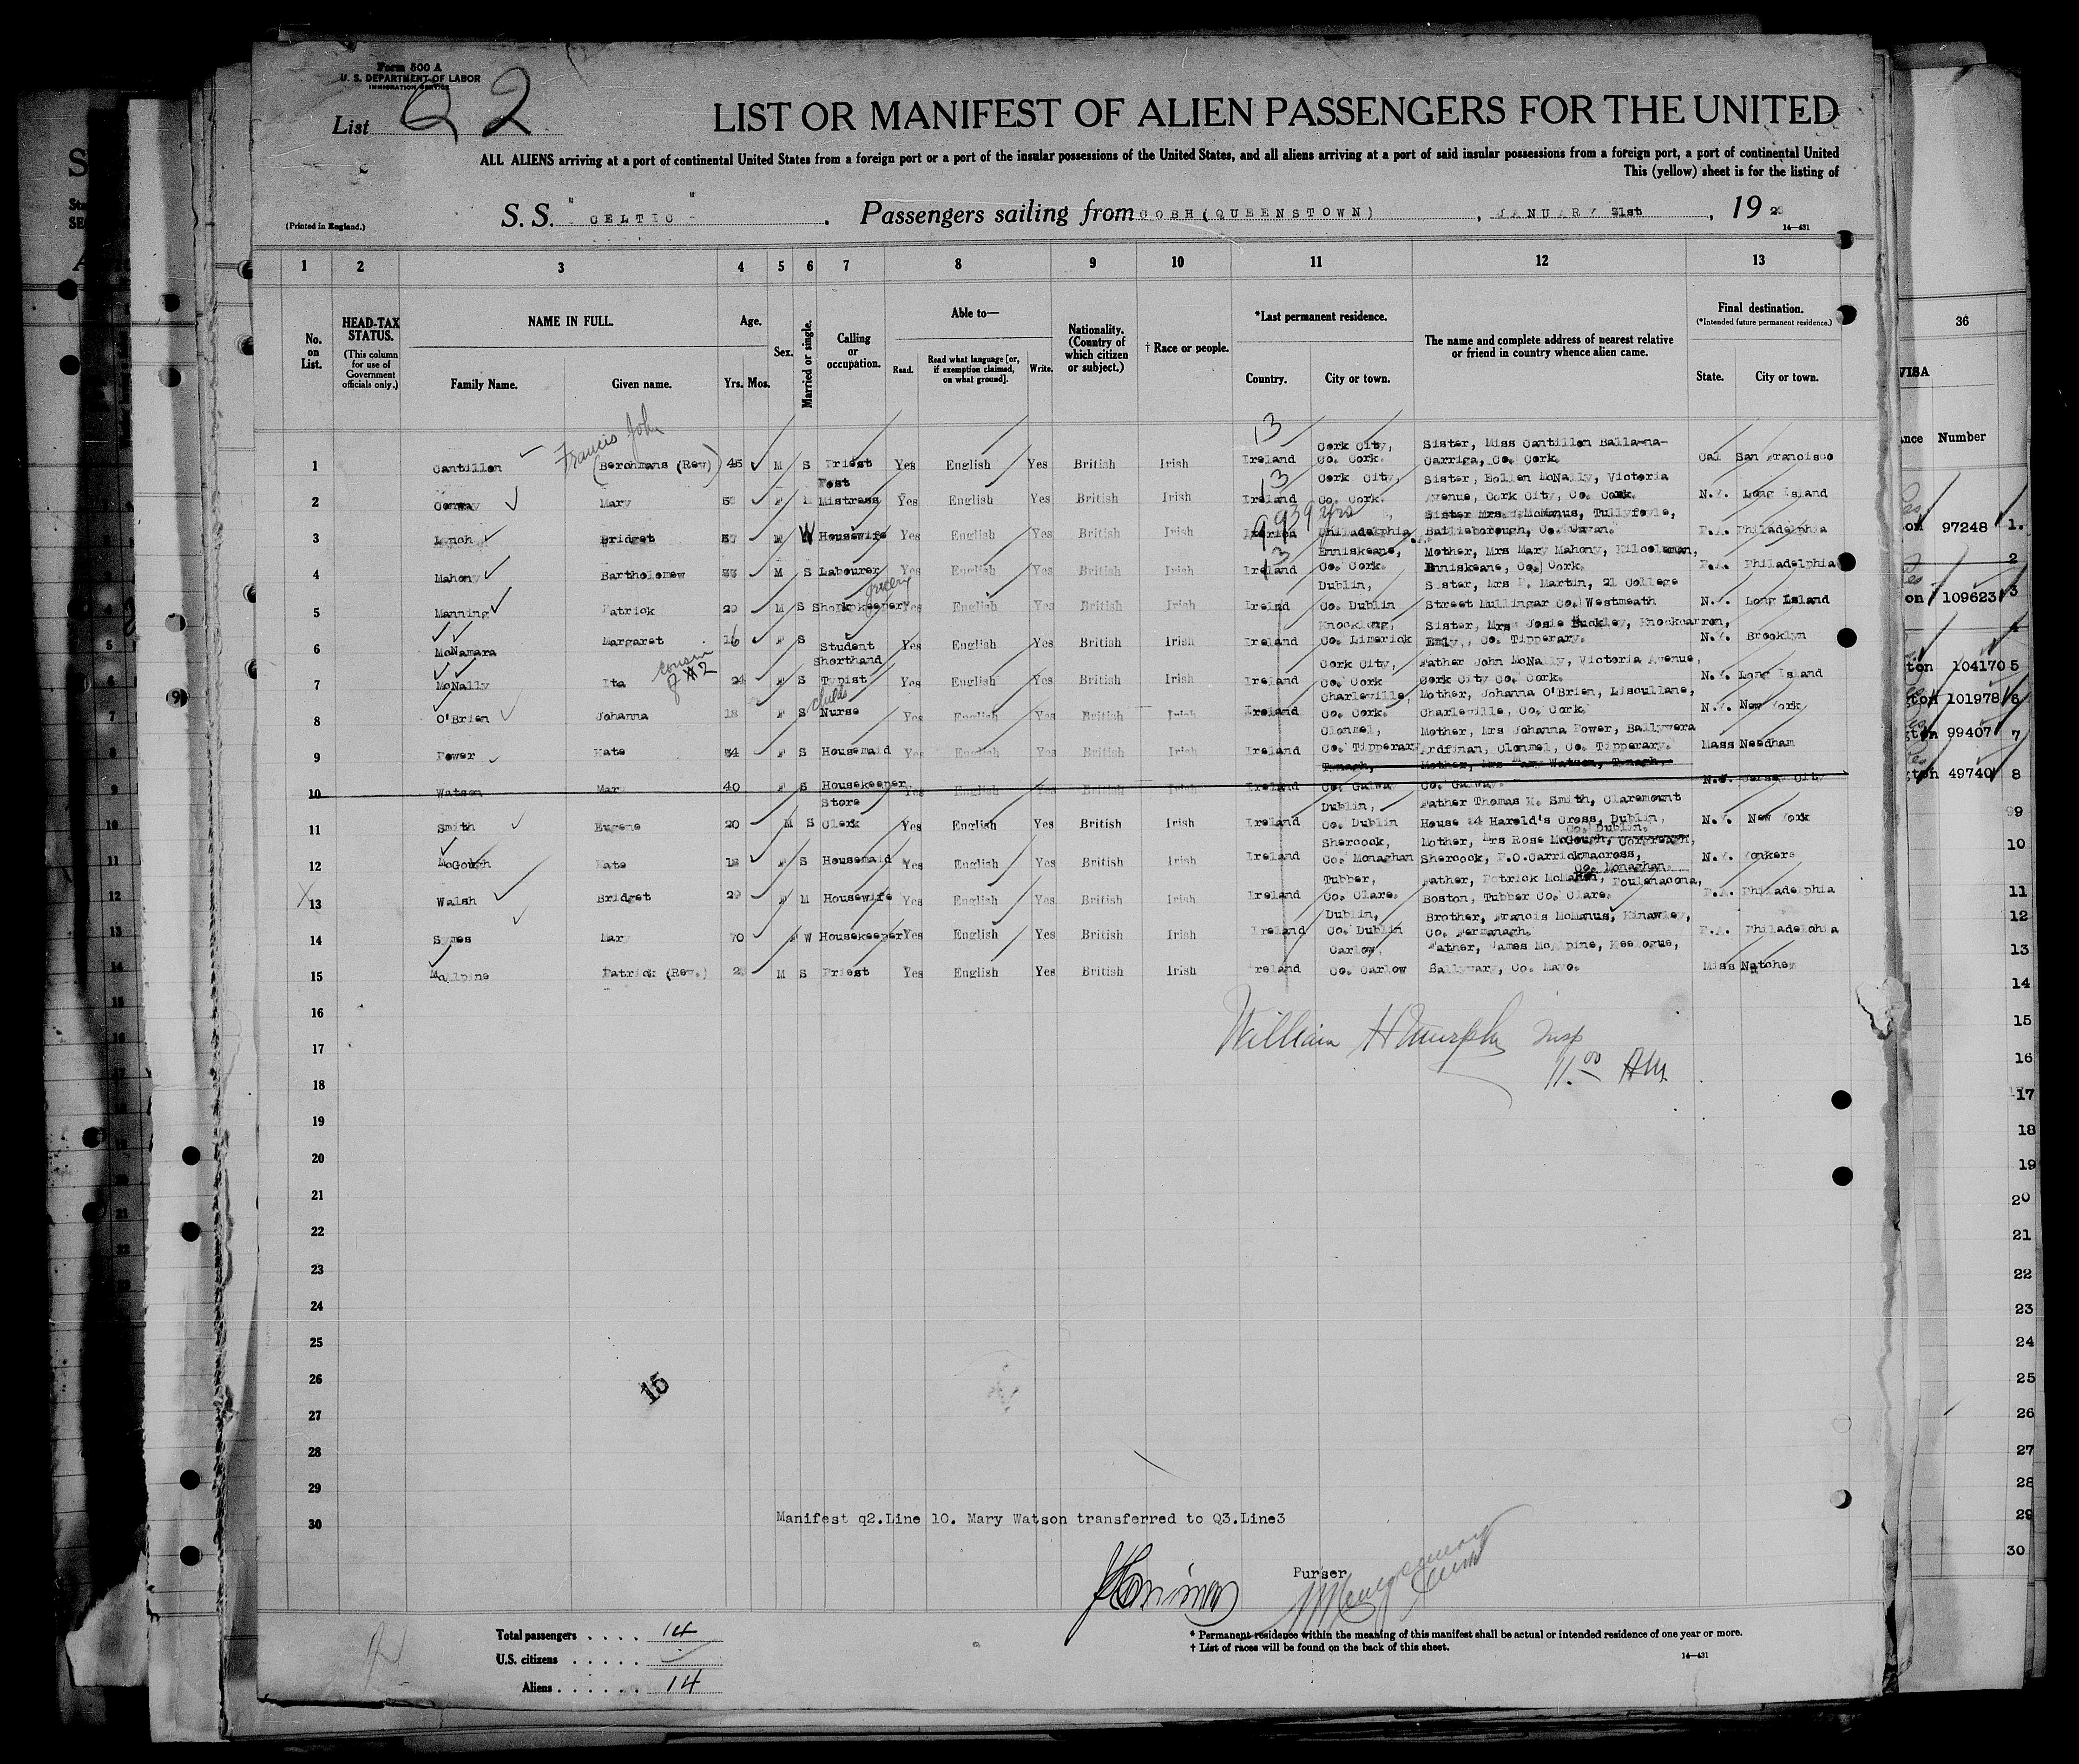 Form 500 A
U. S. DEPARTMENT OF LABOR
IMMIGRATION SERVICE
List Q 2
LIST OR MANIFEST OF ALIEN PASSENGERS FOR THE UNITED
ALL ALIENS arriving at a port of continental United States from a foreign port or a port of the insular possessions of the United States, and all aliens arriving at a port of said insular possessions from a foreign port, a port of continental United
This (yellow) sheet is for the listing of
(Printed in England.)
S. S. " CELTIC " . Passengers sailing from COBH (QUEENSTOWN) , JANUARY 21st , 19
14—431
1 2 3 4 5 6 7 8 9 10 11 12 13
No. on List.
HEAD-TAX STATUS.
(This column for use of Government officials only.)
NAME IN FULL.
Family Name. Given name.
Age.
Yrs. Mos.
Sex.
Married or single.
Calling or occupation.
Able to—
Read. Read what language [or, if exemption claimed, on what ground]. Write.
Nationality. (Country of which citizen or subject.)
† Race or people.
*Last permanent residence.
Country. City or town.
The name and complete address of nearest relative or friend in country whence alien came.
Final destination.
(*Intended future permanent residence.)
State. City or town.
36
VISA
Number
Francis John
13
1 Cantillon (Berchmans (Rev) 45 M S Priest Yes English Yes British Irish Ireland Cork City, Co. Cork. Sister, Miss Cantillon Balla-na-Carriga, Co. Cork. Cal San Francisco
13
2 Conway Mary F M Post Mistress Yes English Yes British Irish Ireland Cork City, Co. Cork. Sister, Eollen McNally, Victoria Avenue, Cork City, Co. Cork. N.Y. Long Island
99 39 yrs
3 Lynch Bridget 57 F W Housewife Yes English Yes British Irish America Philadelphia Sister Mrs McManus, Tullyfoyle, Bailieborough, Co. Cavan. P.A. Philadelphia
13
4 Mahony Bartholomew 33 M S Labourer Yes English Yes British Irish Ireland Enniskeane, Co. Cork. Mother, Mrs Mary Mahony, Kilcoleman, Enniskeane, Co. Cork. P.A. Philadelphia
grocery
5 Manning Patrick 29 M S Shopkeeper Yes English Yes British Irish Ireland Dublin, Co. Dublin Sister, Mrs P. Martin, 21 College Street Mullingar Co. Westmeath N.Y. Long Island
6 McNamara Margaret 16 F S Student Yes English Yes British Irish Ireland Knocklong, Co. Limerick Sister, Mrs Josie Buckley, Knockcarron, Emly, Co. Tipperary. N.Y. Brooklyn
cousin of #2
7 McNally Ita 24 F S Shorthand Typist Yes English Yes British Irish Ireland Cork City, Co. Cork Father John McNally, Victoria Avenue, Cork City Co. Cork. N.Y. Long Island
childs
8 O'Brien Johanna 18 F S Nurse Yes English Yes British Irish Ireland Charleville, Co. Cork. Mother, Johanna O'Brien, Liscullane, Charleville, Co. Cork. N.Y. New York
9 Power Kate 34 F S Housemaid Yes English Yes British Irish Ireland Clonmel, Co. Tipperary Mother, Mrs Johanna Power, Ballywera Ardfinan, Clonmel, Co. Tipperary. Mass Needham
10 Watson Mary 40 F S Housekeeper Yes English Yes British Irish Ireland Tynagh, Co. Galway Mother, Mrs Mary Watson, Tynagh, Co. Galway. N.J. Jersey City
11 Smith Eugene 20 M S Store Clerk Yes English Yes British Irish Ireland Dublin, Co. Dublin Father Thomas H. Smith, Claremount House 84 Harold's Cross, Dublin, Co. Dublin. N.Y. New York
12 McGough Kate 18 F S Housemaid Yes English Yes British Irish Ireland Shercock, Co. Monaghan Mother, Mrs Rose McGough, Corgreagh, Shercock, P.O. Carrickmacross, Co. Monaghan. N.Y. Yonkers
13 Walsh Bridget 29 F M Housewife Yes English Yes British Irish Ireland Tubber, Co. Clare. Father, Patrick McMahon, Poulenacona, Boston, Tubber Co. Clare. P.A. Philadelphia
14 Symes Mary 70 F W Housekeeper Yes English Yes British Irish Ireland Dublin, Co. Dublin Brother, Francis McManus, Kinawley, Co. Fermanagh. P.A. Philadelphia
15 McAlpine Patrick (Rev.) M S Priest Yes English Yes British Irish Ireland Carlow, Co. Carlow Father, James McAlpine, Keelogue, Ballyvary, Co. Mayo. Miss Natchez
16
17
18
19
20
21
22
23
24
25
26
27
28
29
30
William H Murphy Insp
11.00 AM
15
Manifest q2.Line 10. Mary Watson transferred to Q3.Line3
Purser
Total passengers . . . . 14
U.S. citizens . . . . .
Aliens . . . . . . 14
* Permanent residence within the meaning of this manifest shall be actual or intended residence of one year or more.
† List of races will be found on the back of this sheet.
14—431
97248 1
2
109623 3
4
104170 5
101978 6
99407 7
49740 8